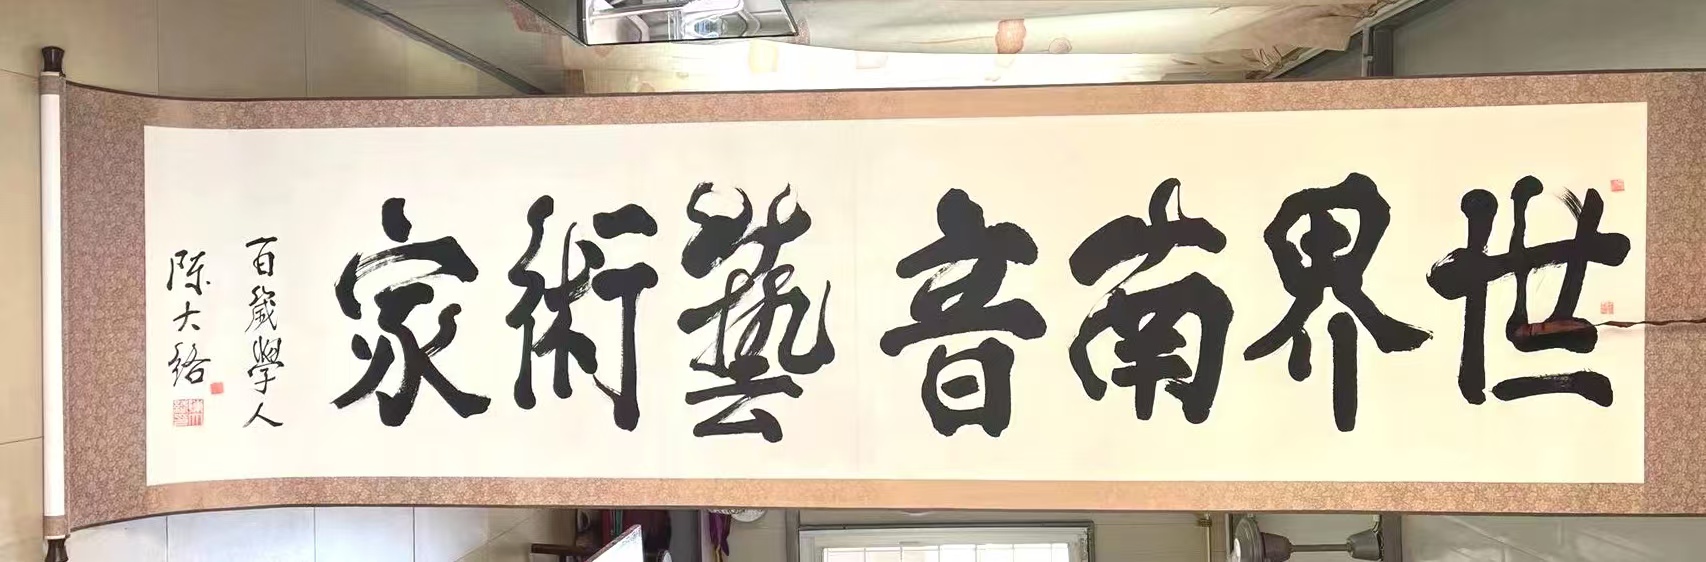 世界南音藝術家
百歲學人
陈大络